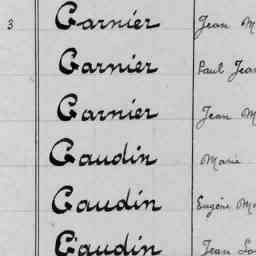 3 Garnier Jean M
Garnier Paul Jean
Garnier Jean M
Gaudin Marie
Gaudin Eugène Ma
Gaudin Jean Lo